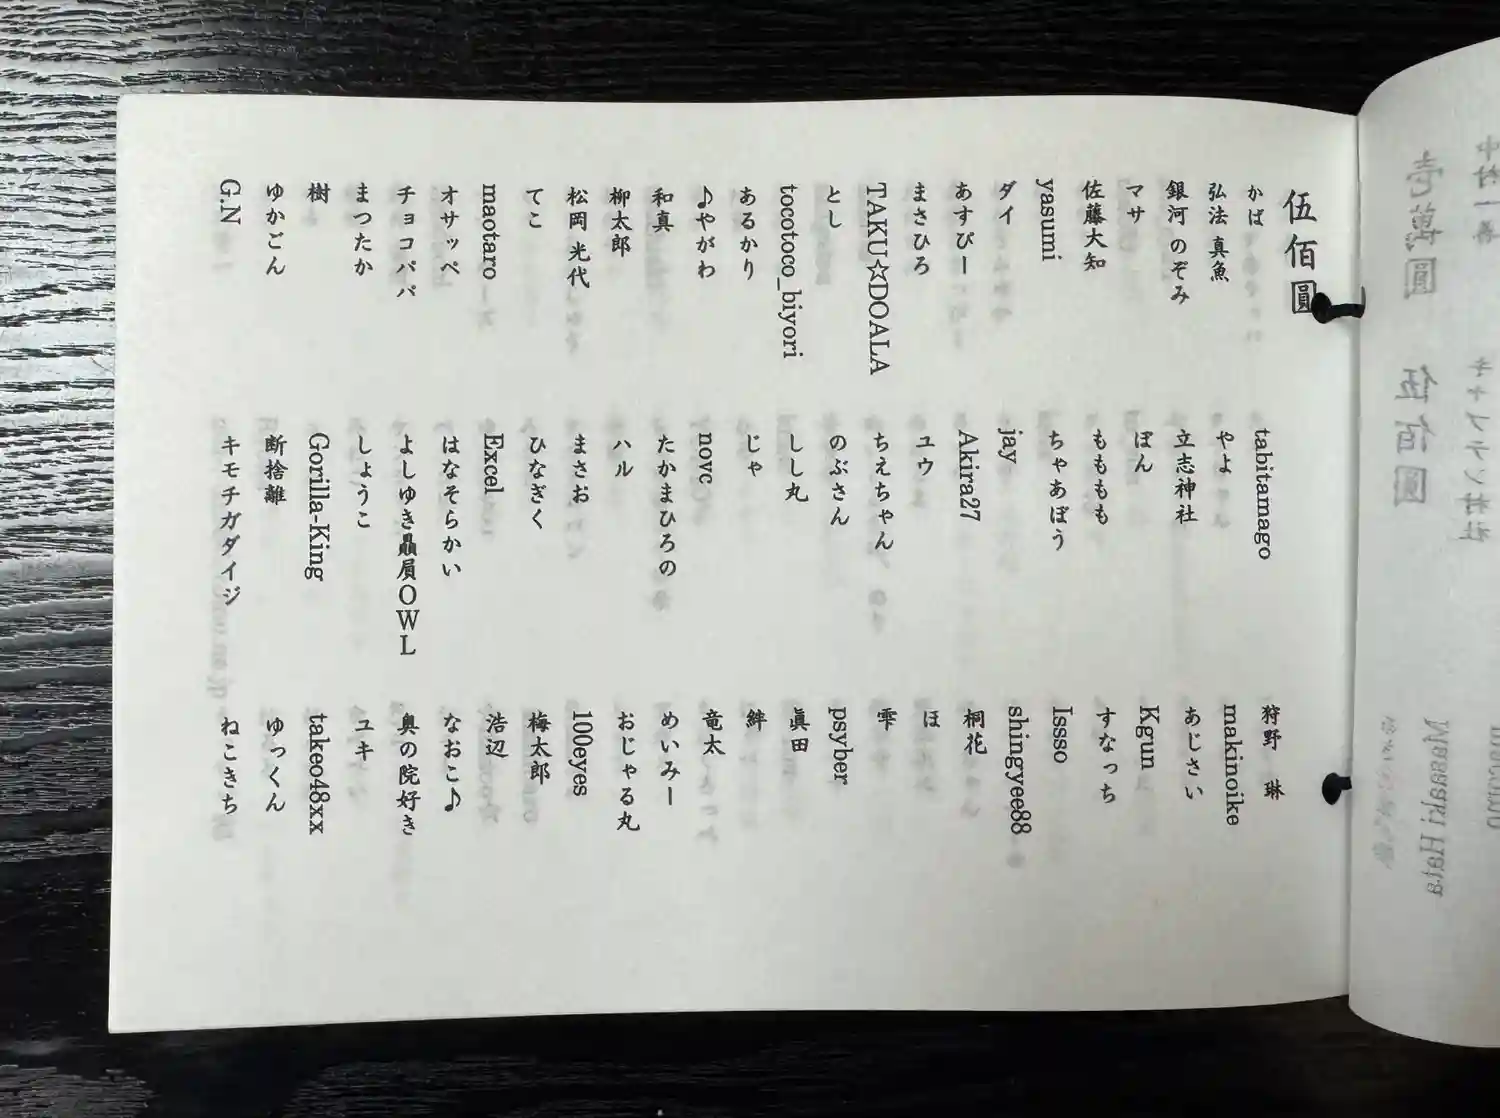 伍佰圓
かば
弘法 真魚
銀河 のぞみ
マサ
佐藤大知
yasumi
ダイ
あすぴー
まさひろ
TAKU☆DOALA
とし
tocotoco_biyori
あるかり
♪やがわ
和真
柳太郎
松岡 光代
てこ
maotaro
オサッペ
チョコパパ
まつたか
樹
ゆかごん
G.N
tabitamago
やよ
立志神社
ぽん
もももも
ちゃあぼう
jay
Akira27
ユウ
ちえちゃん
のぶさん
しし丸
じゃ
novc
たかまひろの
ハル
まさお
ひなぎく
Excel
はなそらかい
よしゆき贔屓OWL
しょうこ
Gorilla-King
断捨離
キモチガダイジ
狩野 琳
makinoike
あじさい
Kgun
すなっち
Issso
shingyee88
桐花
ほ
雫
psyber
眞田
絆
竜太
めいみー
おじゃる丸
100eyes
梅太郎
浩辺
なおこ♪
奥の院好き
ユキ
takeo48xx
ゆっくん
ねこきち
壱萬圓
伍佰圓
キャプテン村社
Masaaki Hata